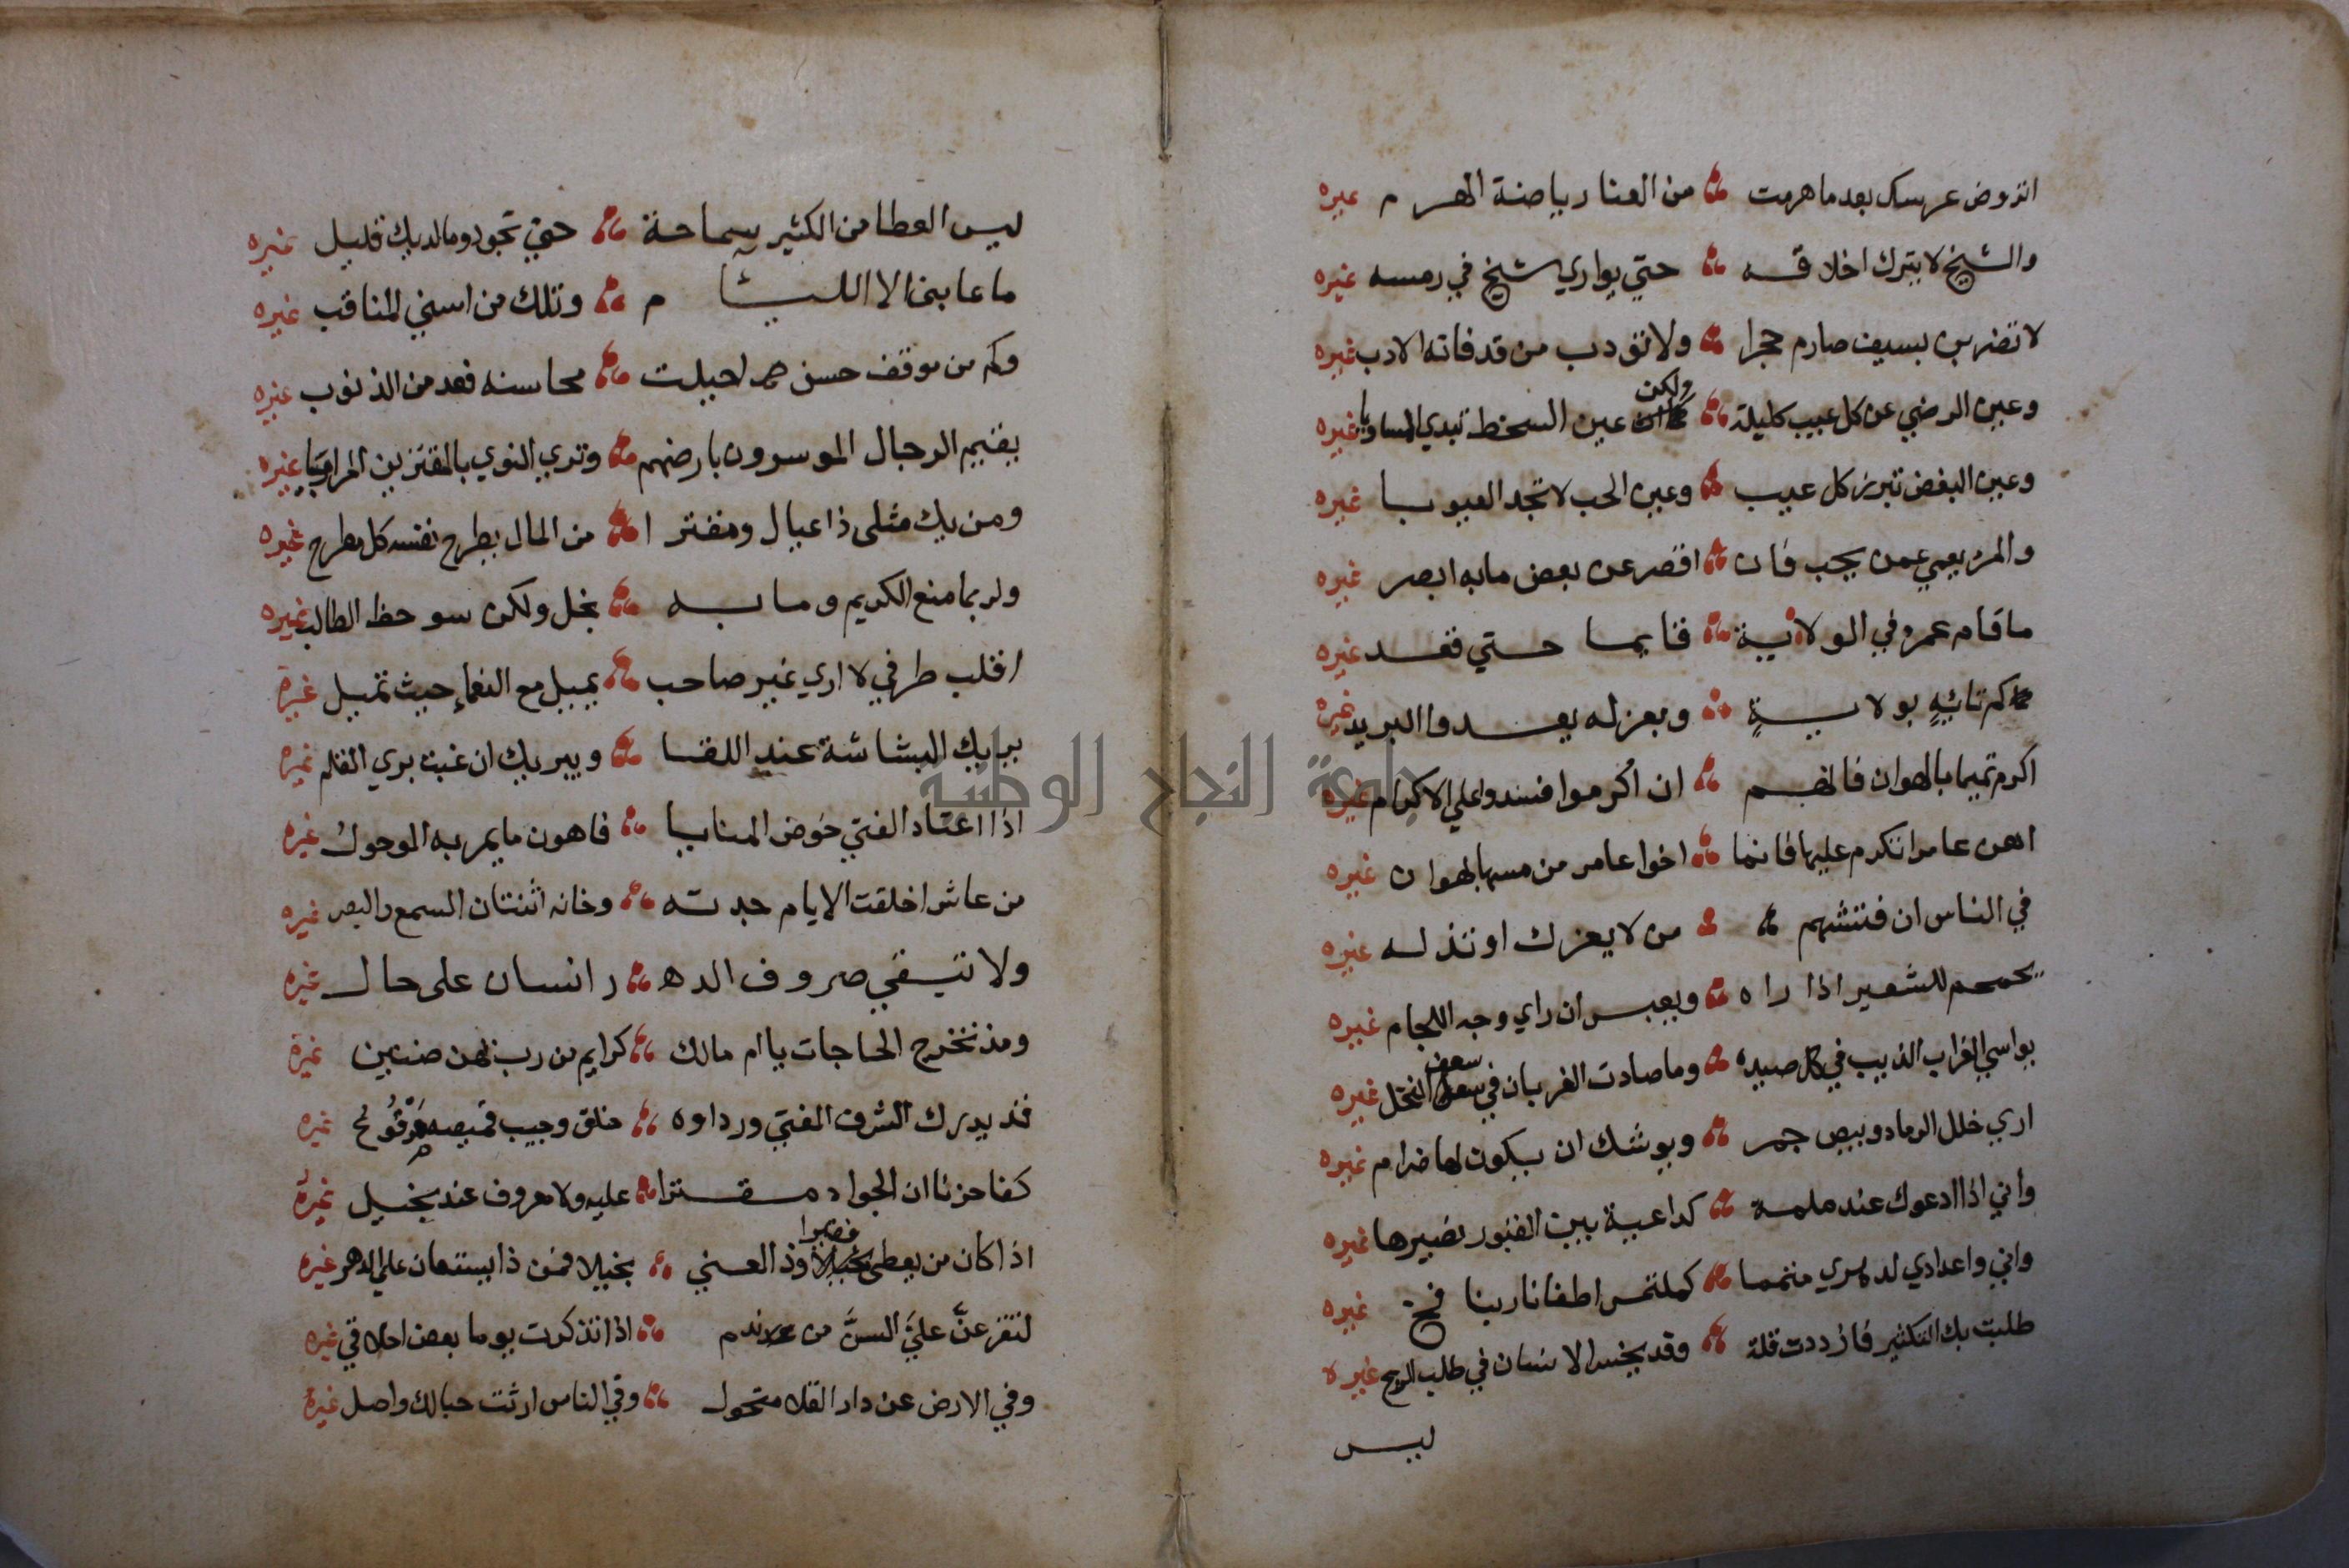 اتروض عرسك بعد ما هرمت من العنا رياضة الهرم غيره
والشيخ لا يترك اخلاقه حتي يواري شيخ في رمسه غيره
لا تضربن بسيف صارم حجرا ولا تؤدب من قد فاته الادب غيره
وعين الرضي عن كل عيب كليلة ولكن عين السخط تبدي المساويا غيره
وعين البغض تبرز كل عيب وعين الحب لا تجد العيوبا غيره
والمرء يعمي عمن يحب فان اقصر عن بعض ما به ابصر غيره
ما قام عمرو في الولاية قايما حتي قعد غيره
كم تائيه بولاية وبعزله يعدوا البريد غيره
اكرم تميما بالهوان فانهم ان اكرموا فسدوا علي الاكرام غيره
اهن عامرا تكرم عليها فانما اخوا عامر من مسها بهوان غيره
في الناس ان فتشتهم من لا يعزك او تذله غيره
يحمحم للشعير اذا راه ويعبس ان راي وجه اللجام غيره
يواسي الغراب الذيب في كل صيده وما صادت الغربان في سعف النخل غيره
اري خلل الرماد وبيص جمر ويوشك ان يكون لها ضرام غيره
وأني اذا ادعوك عند ملمة كداعية بين القبور نصيرها غيره
واني واعدادي لدهري كملتمس اطفا نار بنافخ غيره
طلبت بك التكثير فازددت قلة وقد يخسر الانسان في طلب الربح غيره
ليس
ليس العطا من الكثير سماحة حتي تجود وما لديك قليل غيره
ما عابني الا الليام وتلك من اسني المناقب غيره
وكم من موقف حسن احيلت محاسنه فعد من الذنوب غيره
يقيم الرجال الموسرون بارضهم وتري النوي بالمقترين المراميا غيره
ومن يك مثلي ذا عيال ومقترا من المال يطرح نفسه كل مطرح غيره
ولربما منع الكريم وما به بخل ولكن سو حظ الطالب غيره
اقلب طرفي لا اري غير صاحب يميل مع النعماء حيث تميل غيره
يريك البشاشة عند اللقا ويبريك ان غبت بري القلم غيره
اذا اعتاد الفتي خوض المنايا فاهون ما يمر به الوحول غيره
من عاش اخلقت الايام جدته وخانه اثنتان السمع والبصر غيره
ولا تبقي صروف الدهر انسان علي حال غيره
وقد تخرج الحاجات يا ام مالك كرايم من رب بهن ضنين غيره
قد يدرك الشرف الفتي ورداوه خلق وجيب قميصه مرقوع غيره
كفا حزنا ان الجواد مقترا عليه ولا معروف عند بخيل غيره
اذا كان من يعطي فقيرا وذ الغني بخيلا فمن ذا يستعان علي الدهر غيره
لتقرعنّ عليّ السنّ من ندم اذا تذكرت يوما بعض اخلاقي غيره
وفي الارض عن دار القلا متحول وفي الناس ان رثت حبالك واصل غيره
جامعة النجاح الوطنية